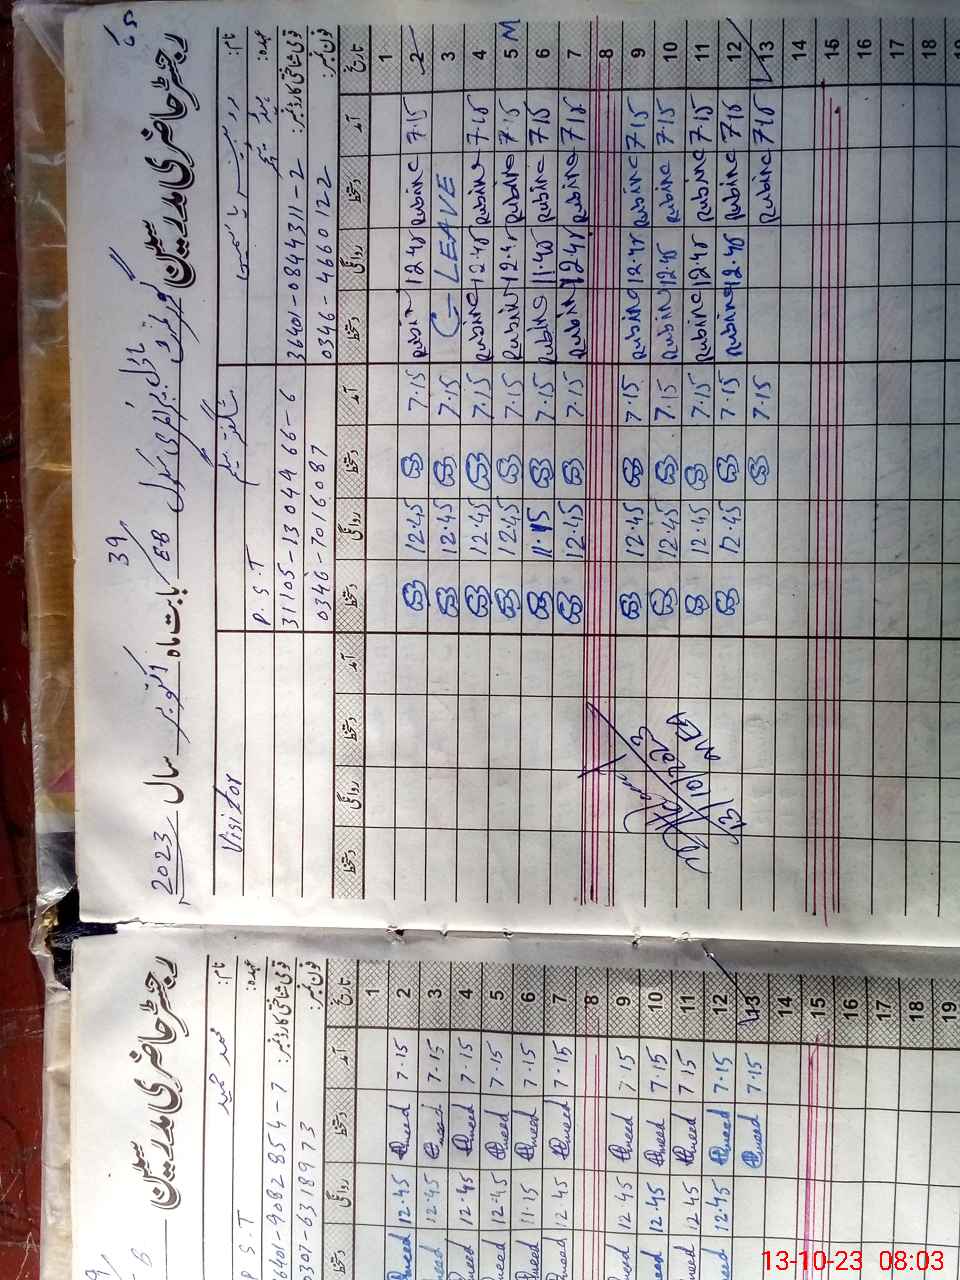 رجسٹر حاضری مدرسین
گورنمنٹ ماڈل پرائمری سکول 39/E-B بابت ماہ اکتوبر سال 2023
نام: شگفتہ بیگم Visitor
عہدہ: P.S.T
قومی شناختی کارڈ نمبر: 36401-0844311-2 31105-1304966-6
فون نمبر: 0346-4660122 0346-7016087
تاریخ آمد دستخط روانگی دستخط آمد دستخط روانگی دستخط آمد دستخط روانگی دستخط
1
2 7.15 Rubina 12.45 7.15 12.45
3 LEAVE 7.15 12.45
4 7.15 Rubina 12.45 Rubina 7.15 12.45
5 M 7.15 Rubina 12.45 Rubina 7.15 12.45
6 7.15 Rubina 11.15 Rubina 7.15 11.15
7 7.15 Rubina 12.45 Rubina 7.15 12.45
8
9 7.15 Rubina 12.45 Rubina 7.15 12.45
10 7.15 Rubina 12.45 Rubina 7.15 12.45
11 7.15 Rubina 12.45 Rubina 7.15 12.45
12 7.15 Rubina 12.45 Rubina 7.15 12.45
13 7.15 Rubina 7.15
14
15
16
17
18
13/10/2023
MEA
رجسٹر حاضری مدرسین
نام: محمد حمید
عہدہ: P.S.T
قومی شناختی کارڈ نمبر: 36401-9082854-7
فون نمبر: 0307-6318973
تاریخ آمد دستخط روانگی دستخط
1
2 7.15 Hmeed 12.45 Hmeed
3 7.15 Hmeed 12.45 Hmeed
4 7.15 Hmeed 12.45 Hmeed
5 7.15 Hmeed 12.45 Hmeed
6 7.15 Hmeed 11.15 Hmeed
7 7.15 Hmeed 12.45 Hmeed
8
9 7.15 Hmeed 12.45 Hmeed
10 7.15 Hmeed 12.45 Hmeed
11 7.15 Hmeed 12.45 Hmeed
12 7.15 Hmeed 12.45 Hmeed
13 7.15 Hmeed
14
15
16
17
18
19
13-10-23 08:03